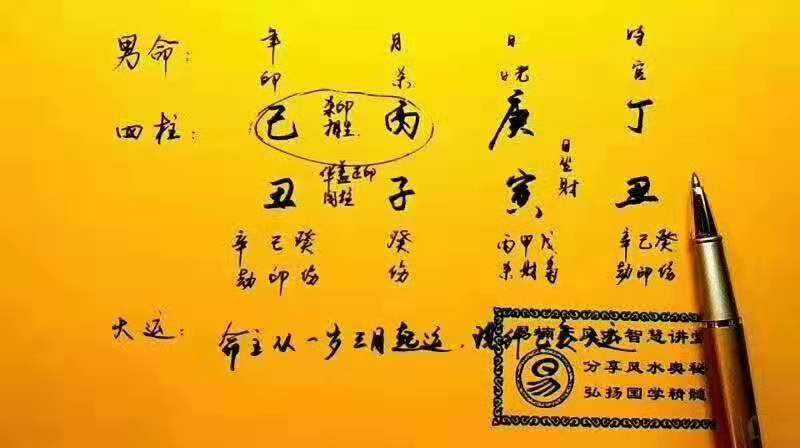 男命： 年 月 日 时
印 杀 官
四柱： 己 杀印相生 丙 庚 丁
日坐财
丑 华盖正印同柱 子 寅 丑
辛 己 癸 癸 丙 甲 戊 辛 己 癸
劫 印 伤 伤 杀 财 枭 劫 印 伤
大运： 命主从一岁三月起运， 大运
智慧讲堂
分享风水奥秘
易
弘扬国学精髓